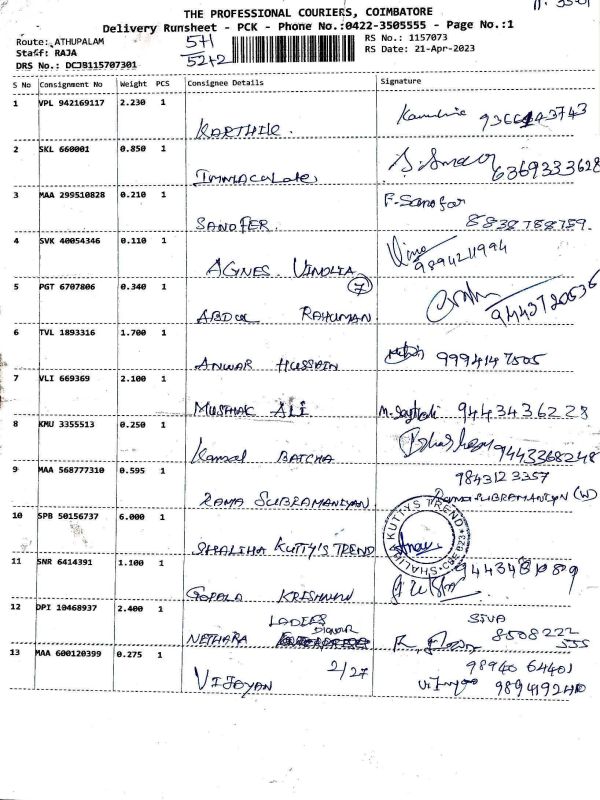 THE PROFESSIONAL COURIERS, COIMBATORE
Delivery Runsheet - PCK - Phone No.:0422-3505555 - Page No.:1
Route: ATHUPALAM
Staff: RAJA
DRS No.: DCJB115707301
RS No.: 1157073
RS Date: 21-Apr-2023
S No Consignment No Weight PCS Consignee Details Signature
1 VPL 942169117 2.230 1
KARTHIK.
2 SKL 660001 0.850 1
IMMACULATE,
3 MAA 299510828 0.210 1 F.Sanofar
SANOFER. 8838788759.
4 SVK 40054346 0.110 1
AGNES VINOLIA 9894211994
5 PGT 6707806 0.340 1 7
ABDUL RAHUMAN 9443720536
6 TVL 1893316 1.700 1
ANWAR HUSSAIN 9994147505
7 VLI 669369 2.100 1
MUSHAK ALI 9443436228
8 KMU 3355513 0.250 1
Kamal BATCHA 9443268248
9 MAA 568777310 0.595 1 9843123357
RAMA SUBRAMANIYAN (W)
10 SPB 50156737 6.000 1
SHALIHA KUTTY'S TREND
SHALIHA KUTTYS TREND
11 SNR 6414391 1.100 1
GOPALA KRISHNAN
12 DPI 10468937 2.400 1 LADIES SIVA
NETHARA 8508222
555
13 MAA 600120399 0.275 1 2/27 98940 64401
VIJAYAN